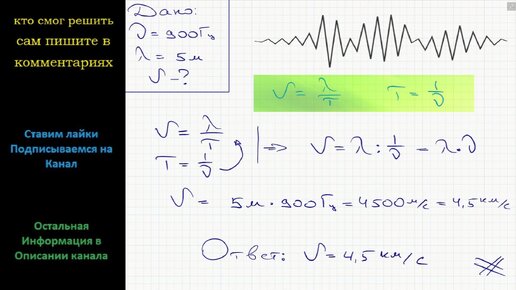 кто смог решить
сам пишите в
комментариях
Ставим лайки
Подписываемся на
Канал
Остальная
Информация в
Описании канала
Дано:
ν = 900 Гц
λ = 5 м
v - ?
v = λ/T T = 1/ν
v = λ/T
T = 1/ν
=> v = λ : 1/ν = λ · ν
v = 5 м · 900 Гц = 4500 м/с = 4,5 км/с
Ответ: v = 4,5 км/с